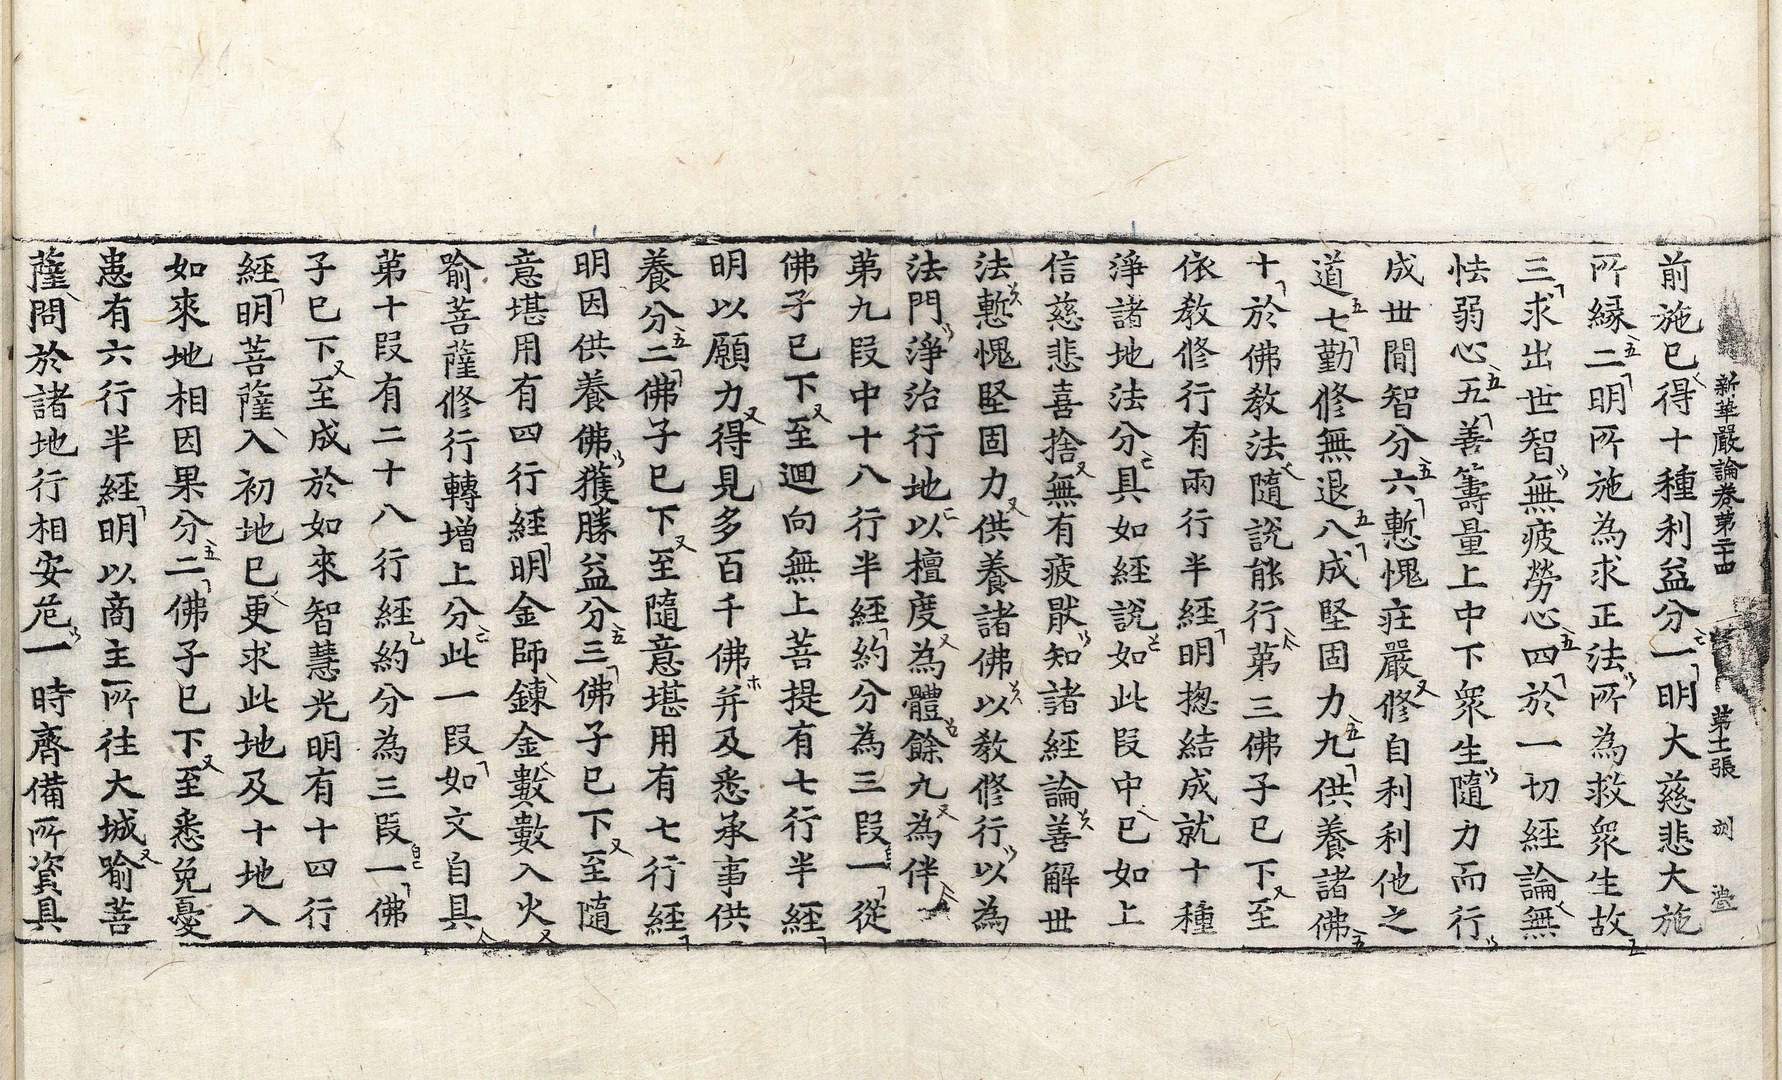 新華嚴論卷第二十四 第十二張
前施已得十種利益分一明大慈悲大施
所緣二明所施為求正法所為救衆生故
三求出世智無疲勞心四於一切經論無
怯弱心五善籌量上中下衆生隨力而行
成世間智分六慙愧莊嚴修自利利他之
道七勤修無退八成堅固力九供養諸佛
十於佛教法隨說能行第三佛子已下至
依教修行有兩行半經明揔結成就十種
淨諸地法分具如經說如此段中已如上
信慈悲喜捨無有疲猒知諸經論善解世
法慙愧堅固力供養諸佛以教修行以為
法門淨治行地以檀度為體餘九為伴
第九段中十八行半經約分為三段一從
佛子已下至迴向無上菩提有七行半經
明以願力得見多百千佛并及悉承事供
養分二佛子已下至隨意堪用有七行經
明因供養佛獲勝益分三佛子已下至隨
意堪用有四行經明金師鍊金數數入火
喻菩薩修行轉增上分此一段如文自具
第十段有二十八行經約分為三段一佛
子已下至成於如來智慧光明有十四行
經明菩薩入初地已更求此地及十地入
如來地相因果分二佛子已下至悉免憂
恚有六行半經明以商主所往大城喻菩
薩問於諸地行相安危一時齊備所資具